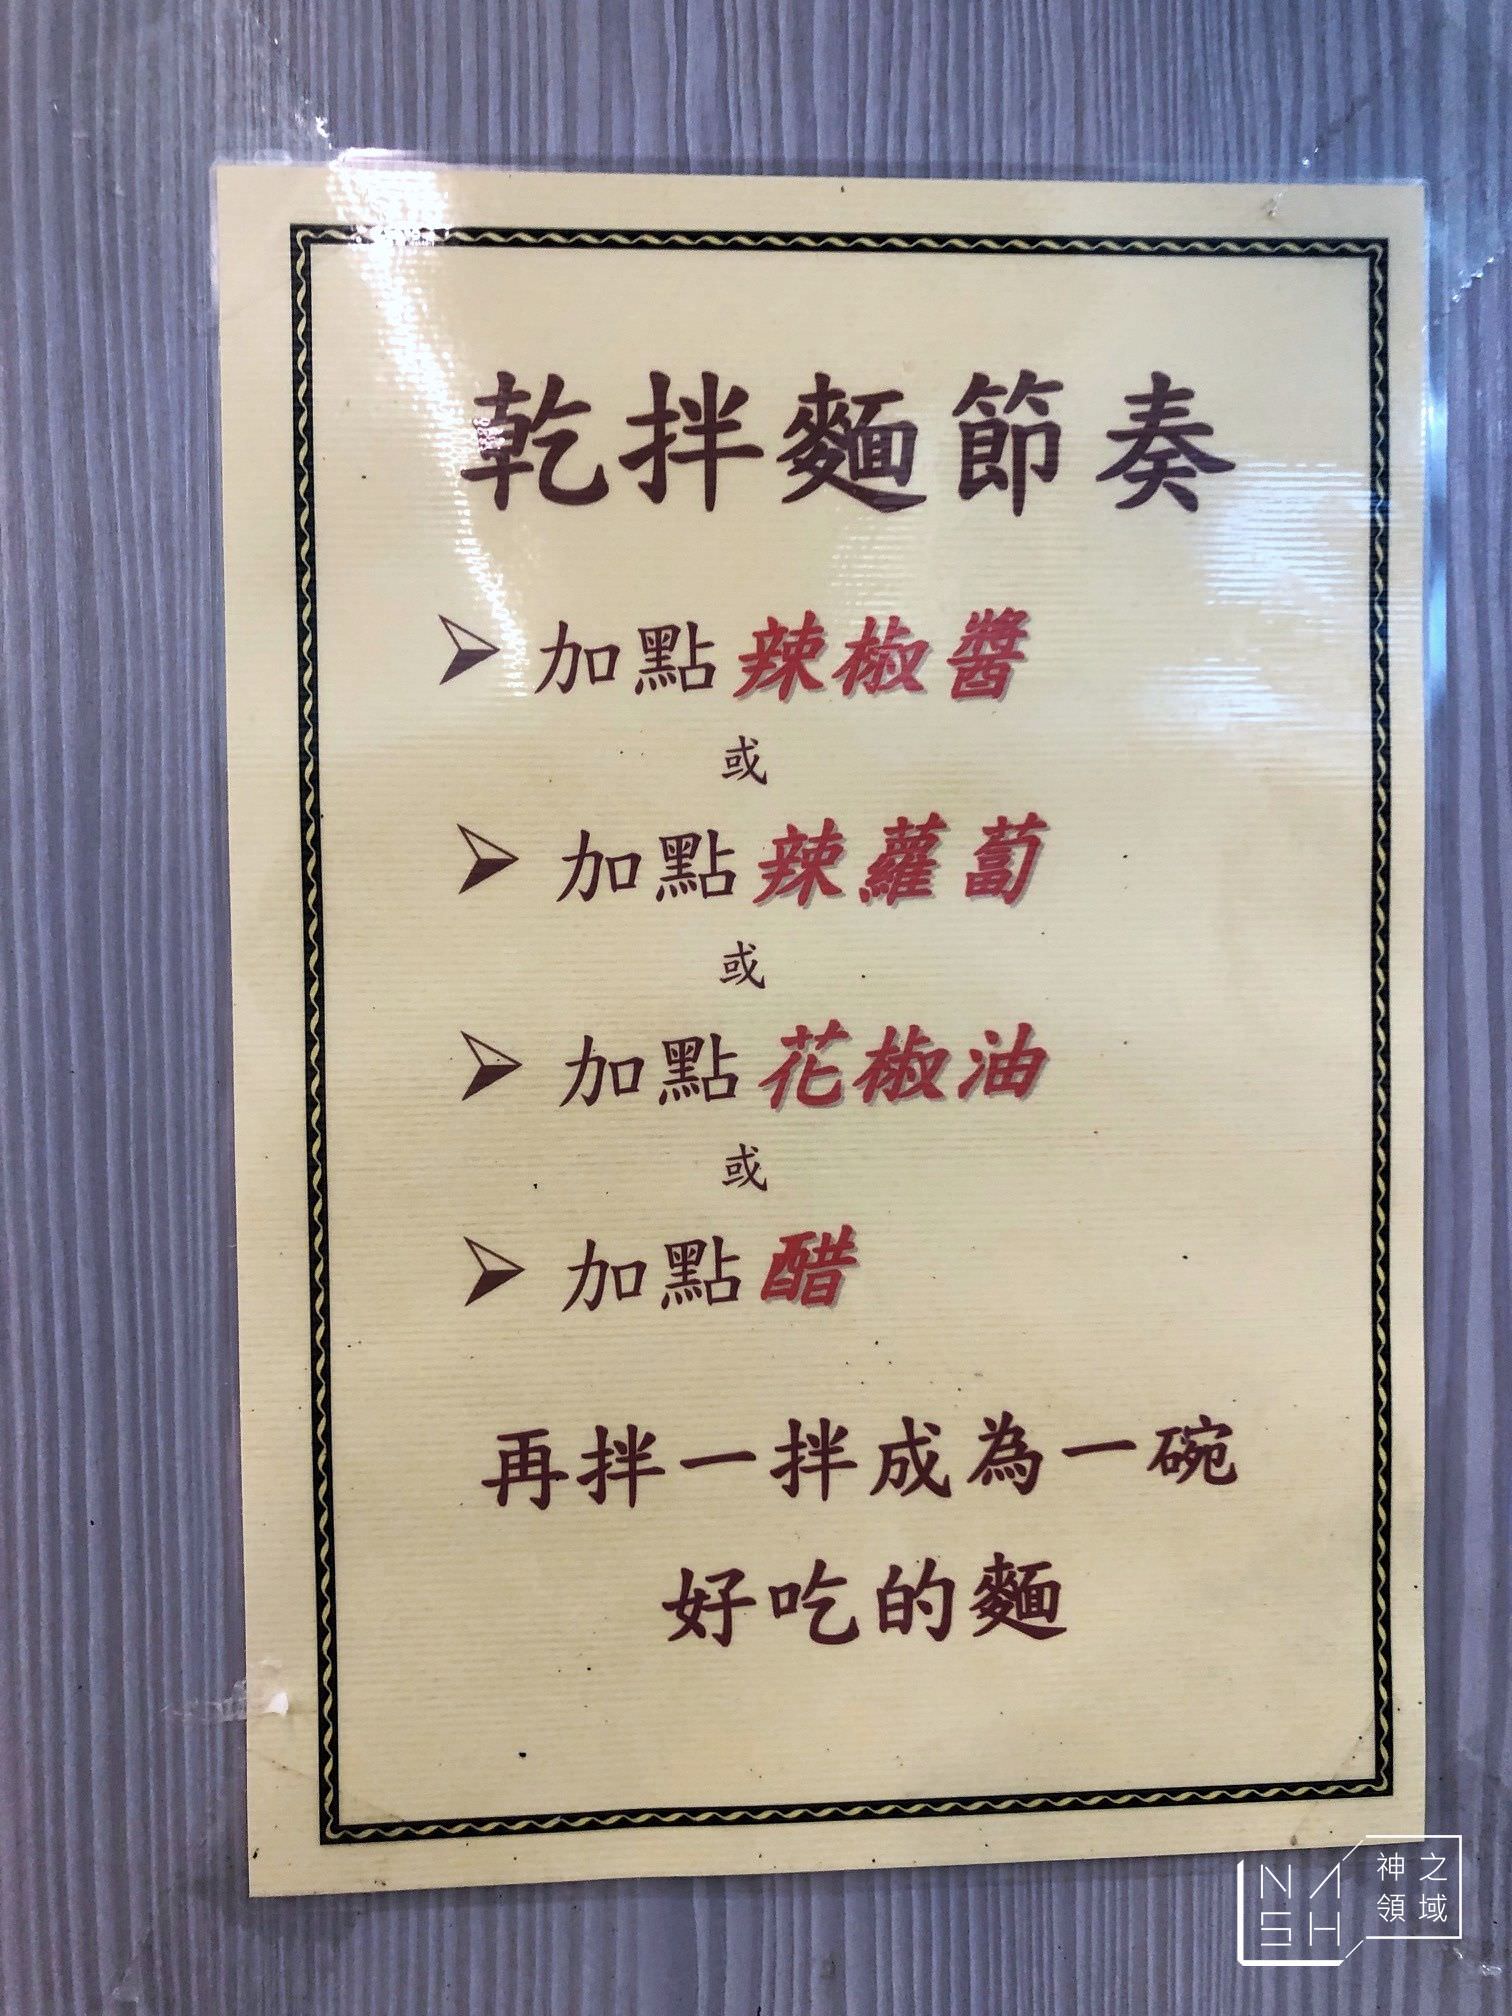 乾拌麵節奏
加點辣椒醬
或
加點辣蘿蔔
或
加點花椒油
或
加點醋
再拌一拌成為一碗
好吃的麵
NASH
神之
領域